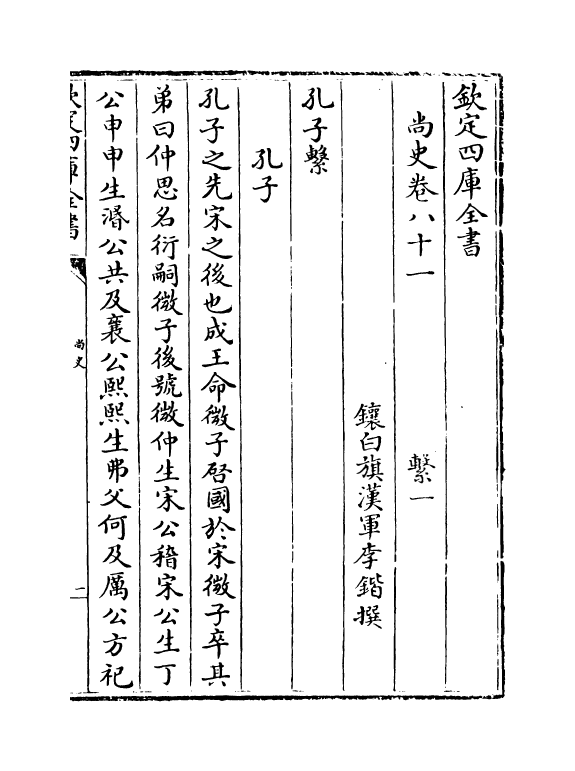 欽定四庫全書
尚史卷八十一 繫一
鑲白旗漢軍李鍇撰
孔子繫
孔子
孔子之先宋之後也成王命微子啓國於宋微子卒其
弟曰仲思名衍嗣微子後號微仲生宋公稽宋公生丁
公申申生湣公共及襄公熙熙生弗父何及厲公方祀
欽定四庫全書
尚史